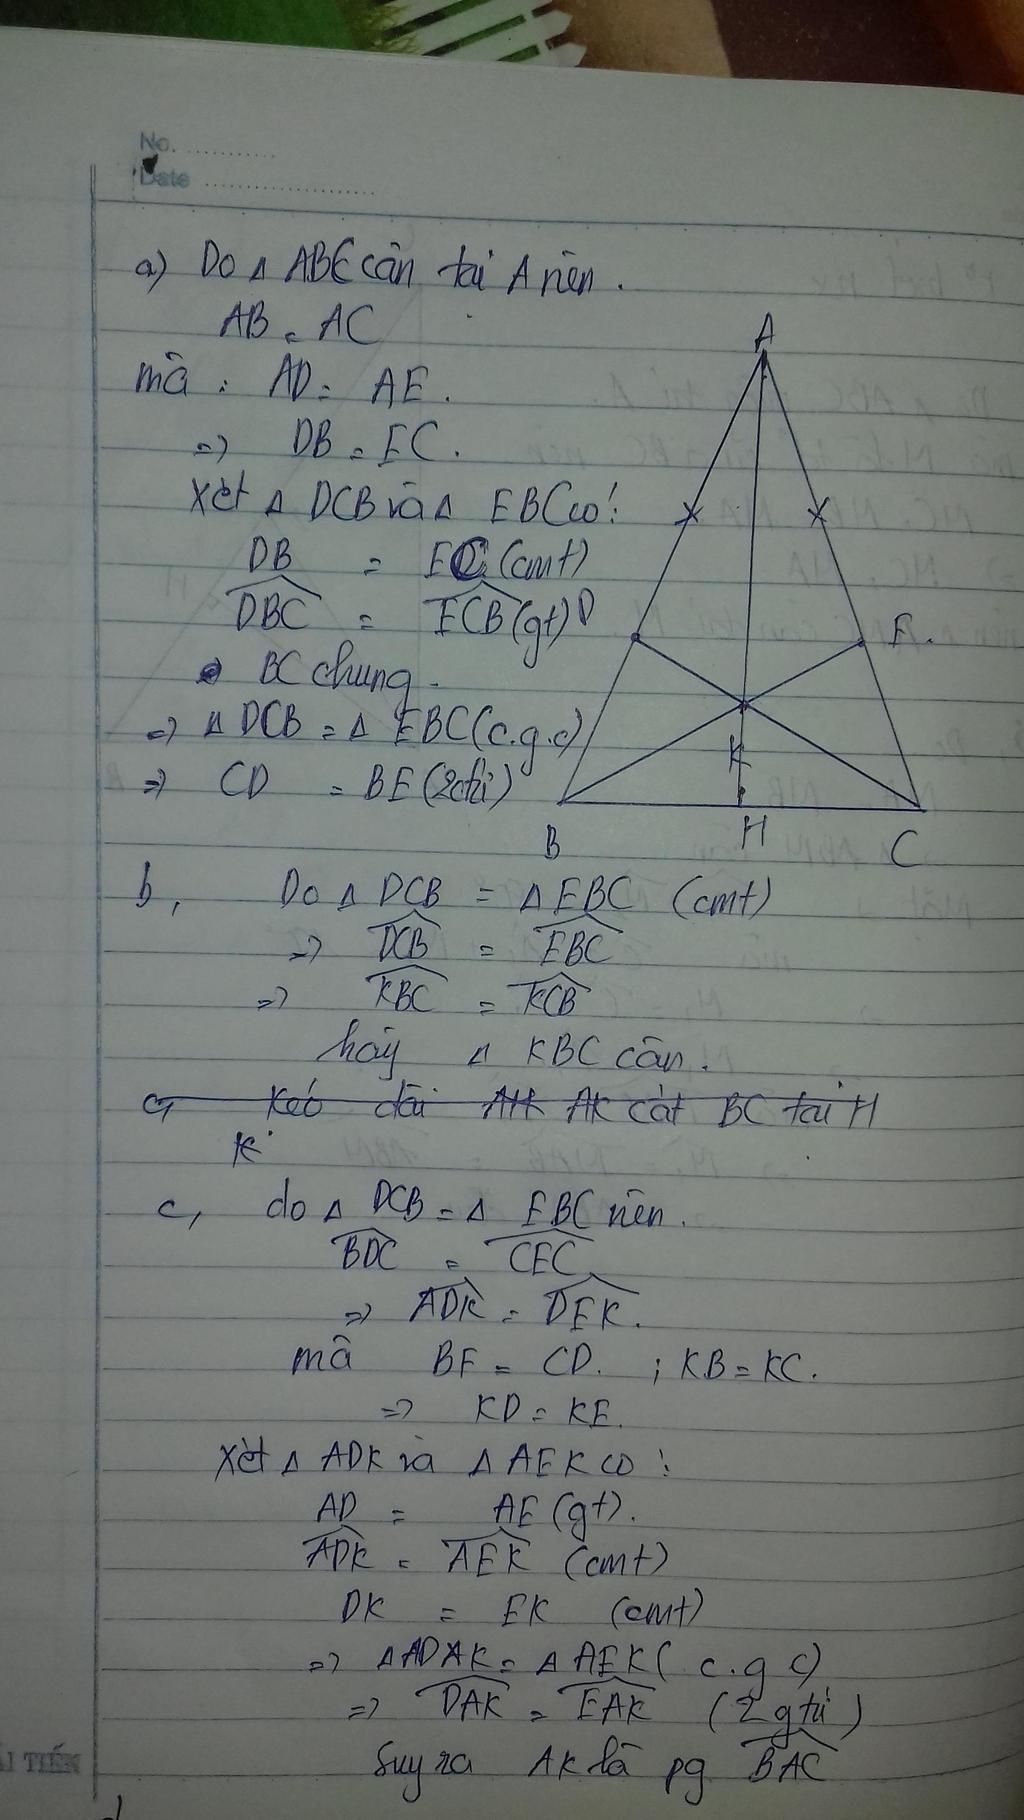 No. ............
Date .....................
a) Do Δ ABC cân tại A nên.
AB = AC
mà : AD = AE.
=> DB = EC.
Xét Δ DCB và Δ EBC có:
DB = EC (cmt)
DBC = ECB (gt)
BC chung.
=> Δ DCB = Δ EBC (c.g.c)
=> CD = BE (2cti)
A
D
E.
K
B
H
C
b, Do Δ DCB = Δ EBC (cmt)
=> DCB = EBC
=> KBC = KCB
hay Δ KBC cân.
c, Kéo dài AH AK cắt BC tại H
K
c, do Δ DCB = Δ EBC nên.
BDC = CEC
=> ADK = DEK.
mà BE = CD. ; KB = KC.
=> KD = KE.
Xét Δ ADK và Δ AEK có :
AD = AE (gt).
ADK = AEK (cmt)
DK = EK (cmt)
=> Δ ADAK = Δ AEK (c.g c)
=> DAK = EAK (2 g tứ)
Suy ra AK là pg BAC
ẢI TIẾN
d